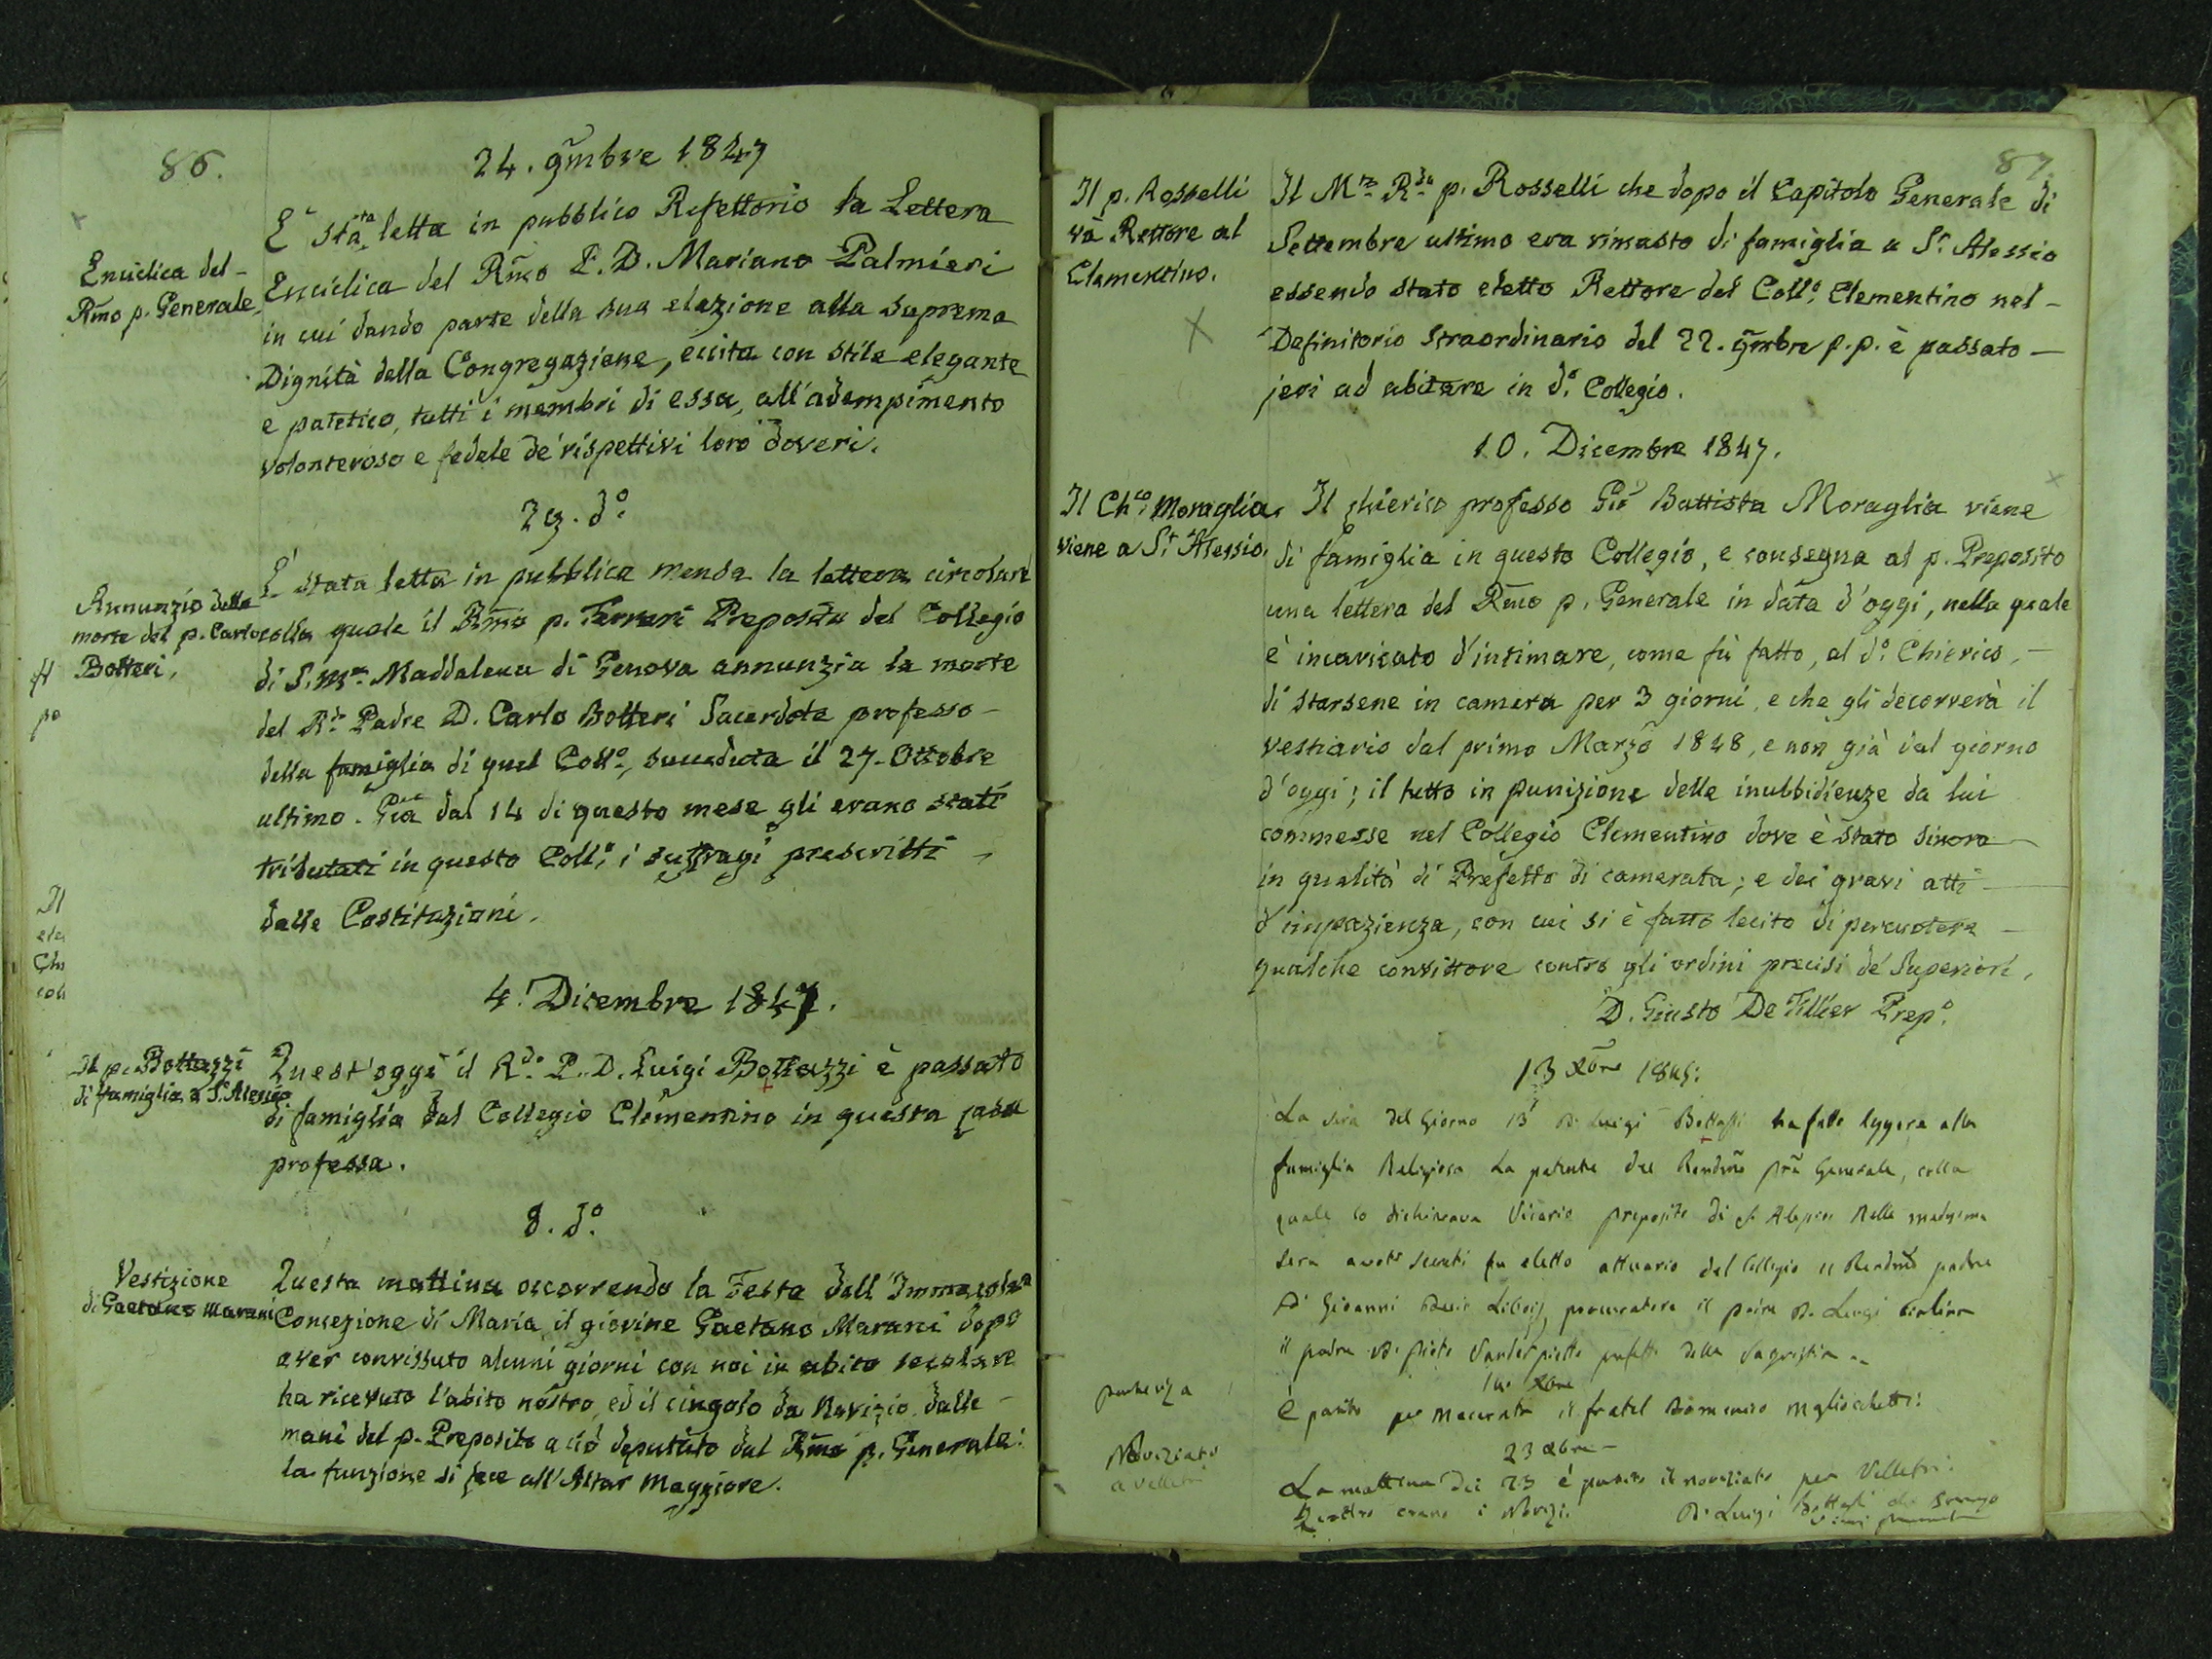 86.
24. 9mbre 1847
Enciclica del
Rmo p. Generale.
E' stata letta in pubblico Refettorio la Lettera
Enciclica del Rmo P. D. Mariano Palmieri
in cui dando parte della sua elezione alla suprema
Dignità della Congregazione, eccita con stile elegante
e patetico, tutti i membri di essa, all'adempimento
volonteroso e fedele de' rispettivi loro doveri.
29. do
Annunzio della
morte del p. Carlo
Botteri.
E' stata letta in pubblica mensa la lettera circolare
colla quale il Rmo p. Ferreri Preposito del Collegio
di S. Ma Maddalena di Genova annunzia la morte
del Rdo Padre D. Carlo Botteri Sacerdote professo
della famiglia di quel Collo, succeduta il 27. Ottobre
ultimo. Già dal 14 di questo mese gli erano stati
tributati in questo Collo i suffragi prescritti
dalle Costituzioni.
4. Dicembre 1847.
Il p. Bottazzi
di famiglia a S. Alessio
Quest'oggi il Rdo P. D. Luigi Bottazzi è passato
di famiglia dal Collegio Clementino in questa casa
professa.
8. do
Vestizione
di Gaetano Marani
Questa mattina occorrendo la Festa dell'Immacolata
Concezione di Maria, il giovine Gaetano Marani dopo
aver convissuto alcuni giorni con noi in abito secolare
ha ricevuto l'abito nostro, ed il cingolo da Novizio dalle
mani del p. Preposito a ciò deputato dal Rmo p. Generale:
la funzione si fece all'Altar Maggiore.
87.
Il p. Rosselli
và Rettore al
Clementino.
Il Mto Rdo p. Rosselli che dopo il Capitolo Generale di
Settembre ultimo era rimasto di famiglia a St Alessio
essendo stato eletto Rettore del Collo Clementino nel
Definitorio Straordinario del 22. 9mbre p.p. è passato
jeri ad abitare in do Collegio.
10. Dicembre 1847.
Il Chco Moraglia
viene a St Alessio.
Il chierico professo Gio Battista Moraglia viene
di famiglia in questo Collegio, e consegna al p. Preposito
una lettera del Rmo p. Generale in data d'oggi, nella quale
è incaricato d'intimare, come fù fatto, al do Chierico,
di starsene in camera per 3 giorni, e che gli decorrerà il
vestiario dal primo Marzo 1848, e non già dal giorno
d'oggi; il tutto in punizione delle inubbidienze da lui
commesse nel Collegio Clementino dove è stato sinora
in qualità di Prefetto di camerata; e dei gravi atti
d'impazienza, con cui si è fatto lecito di percuotere
qualche convittore contro gli ordini precisi de' Superiori.
D. Giusto De Tillier Prepo
13 Xbre
La sera del Giorno 13 D. Luigi Bottassi ha fatto leggere alla
famiglia Religiosa La patente del Rendmo Generale, colla
quale lo dichiarava Vicario preposito di S. Alessio Nella medesima
sera a voti secreti fu eletto attuario del Collegio il Rendmo padre
D. Giovanni Decio Libois, procuratore il padre D. Luigi
il padre D. prefetto della Sagristia
partenza
Xbre
È partito per Macerata il fratel Domenico
Noviziato
a Velletri
23 Xbre
La mattina dei 23 è partito il noviziato per Velletri.
Quattro erano i Novizi.
D. Luigi Bottassi